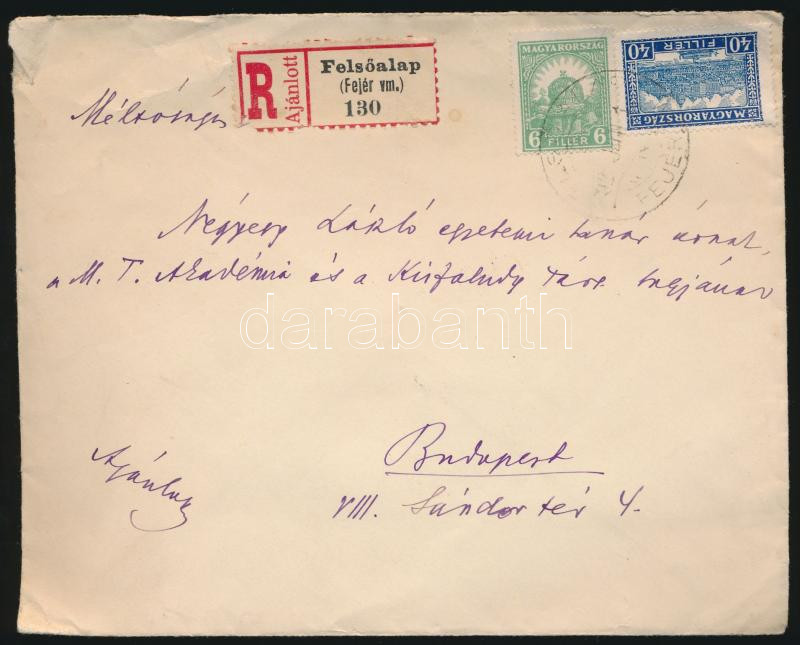 R
Ajánlott
Felsőalap
(Fejér vm.)
130
MAGYARORSZÁG
6 FILLÉR 6
MAGYARORSZÁG
40 FILLÉR 40
FEJÉR
Méltóságos
Négyesy László egyetemi tanár úrnak,
a M. T. Akadémia és a Kisfaludy Társ. tagjának
darabanth
Budapest
Ajánlva
VIII. Sándor tér 4.